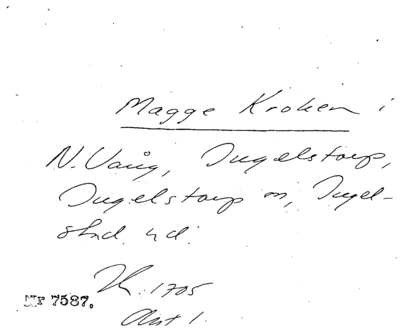 Magge Kroken i
N. Vång, Ingelstorp,
Ingelstorp sn, Ingel-
stad hd.
LK. 1705
Akt 1.
NF 7587.